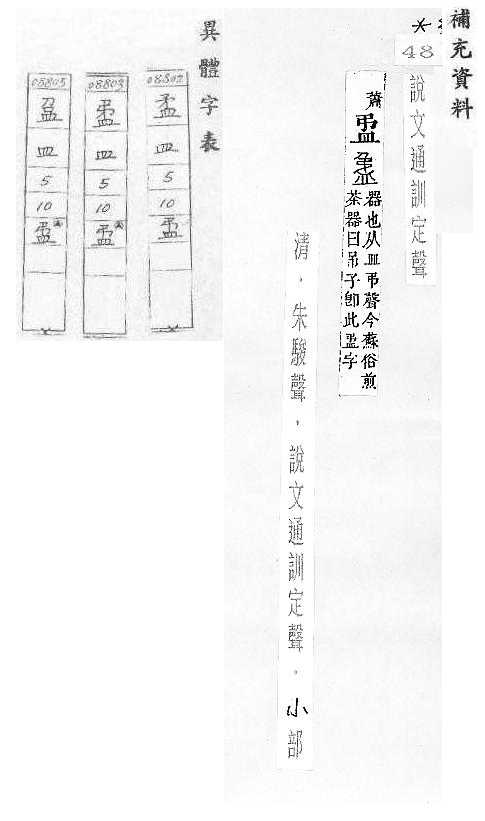 補充資料
48
說文通訓定聲
蕭
器也从皿弔聲今蘇俗煎
茶器曰吊子卽此盄字
清，朱駿聲，說文通訓定聲。小部
異體字表
08802
皿
5
10
盄
08803
盄
皿
5
10
盄
08805
皿
5
10
盄